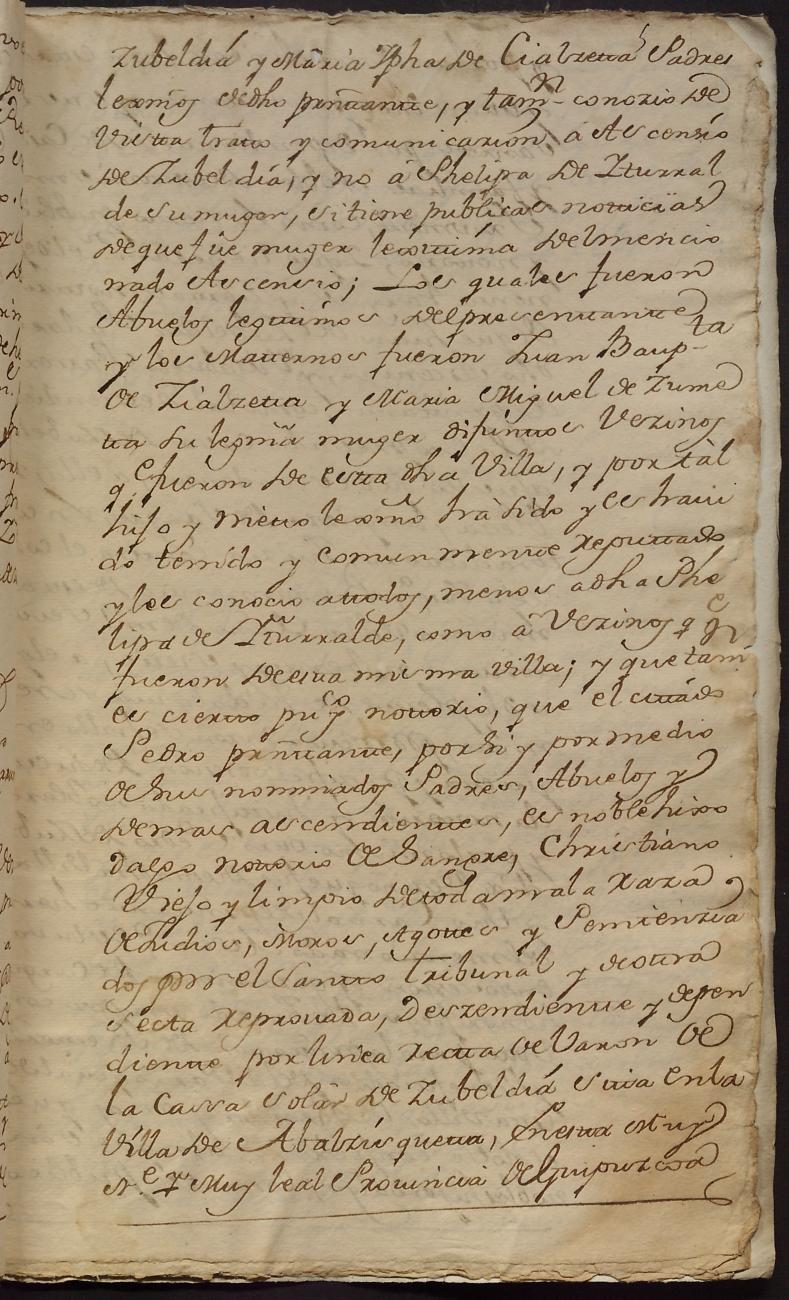 Zubeldiá y Maria Jpha de Cialzetta Padres
lexmos dedho prñtante, y tamn conozio de
vista tratto y comunicazion á Ascensio
de Zubeldiá, y no á Phelipa de Yturral
de su muger, si tiene publicas notticias
de que fue muger lexittima del mencio
nado Ascensio; Los quales fueron
Abuelos legitimos del presenttantte
y los Matternos fueron Juan Baupta
de Zialzetta y Maria Miguel de Zume
tta su legma muger difuntos Vezinos
qe fueron de estta dha Villa, y por tál
hijo y nietto lexmo há sido y es havi
do tenido y comunmentte reputtado
y los conocio a ttodos, menos a dha Phe
lipa de Ytturralde, como á Vezinos qe
fueron de esta misma villa; y que tamn
es ciertto puco y nottorio, que el cittado
Pedro prñttante, por si y por medio
de sus nominados Padres, Abuelos y
demas ascendienttes, es noble hixo
dalgo nottorio de Sangre, Christiano
Viejo y limpio de toda mala raza
de Judios, Moros, Agottes y Penitenzia
dos por el Santto tribunal y de ottra
secta reprouada, Deszendientte y depen
dientte por linea rectta de Varon de
la Cassa solár de Zubeldiá sitta en la
Villa de Abalzisquetta, en esta M. y
N.e y Muy leal Prouincia de Guipuzcoa